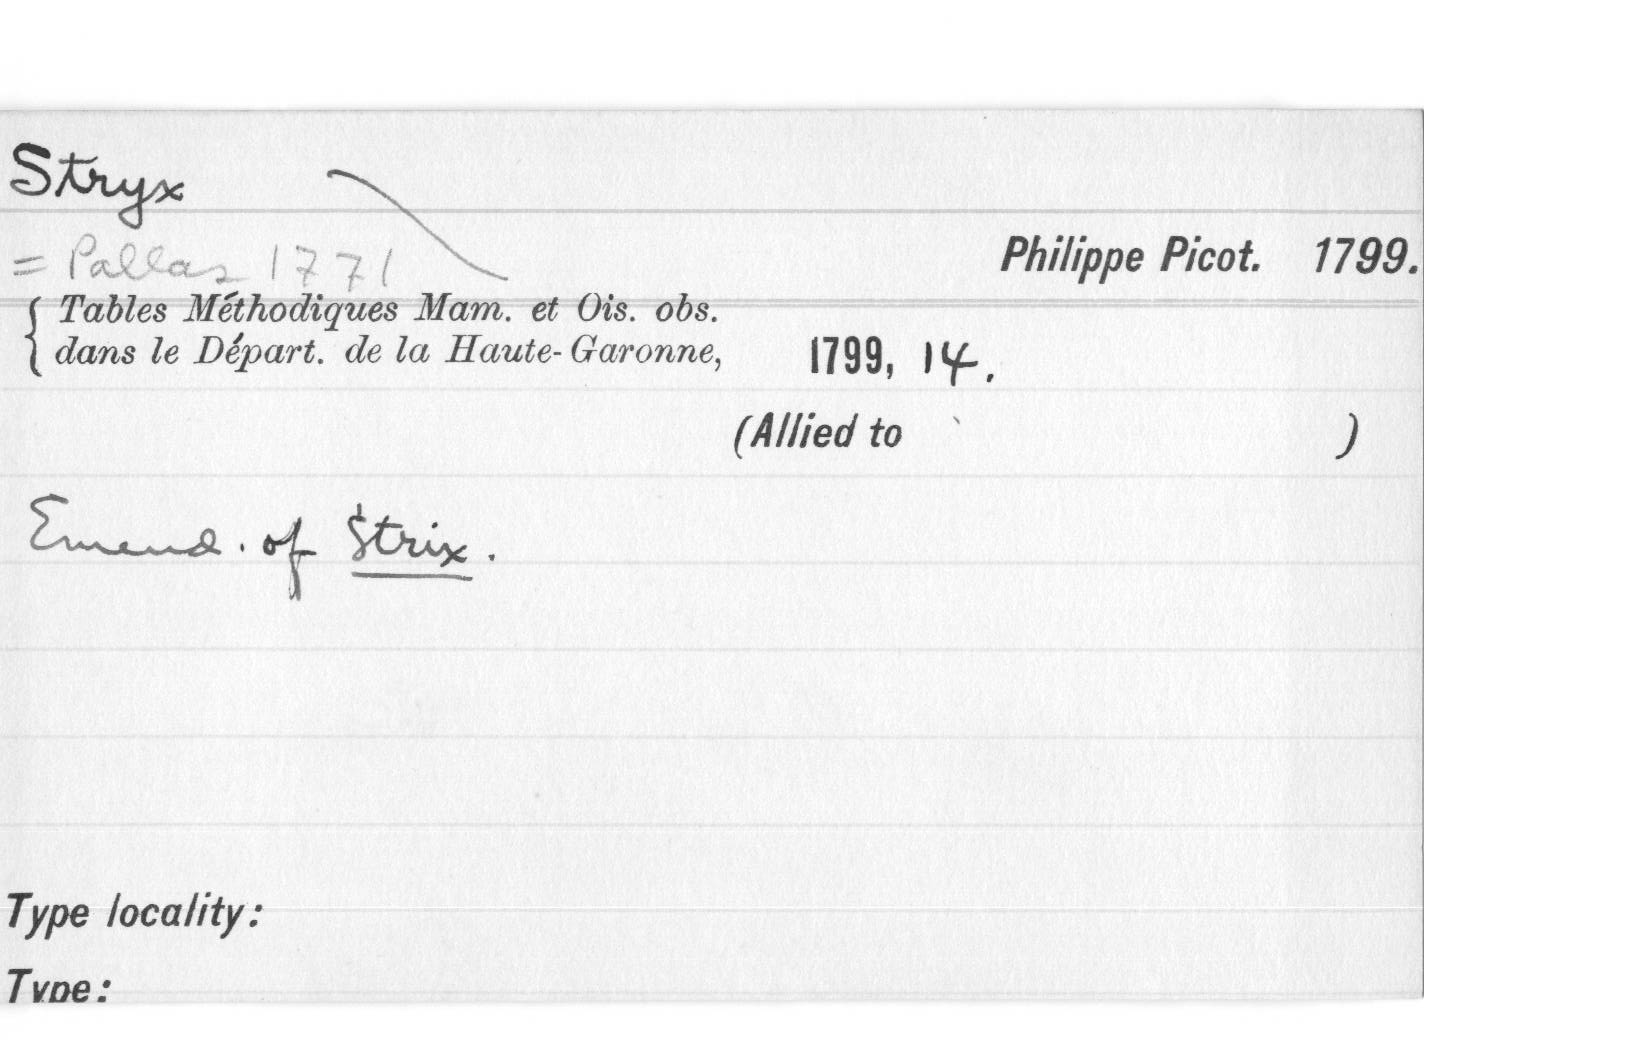 Stryx
= Pallas 1771
Philippe Picot. 1799.
Tables Méthodiques Mam. et Ois. obs.
dans le Départ. de la Haute-Garonne, 1799, 14.
(Allied to )
Emend. of Strix.
Type locality:
Type: